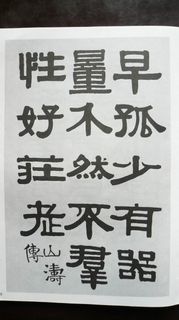 早孤少有器
量介然不羣
性好莊老
山濤
傳